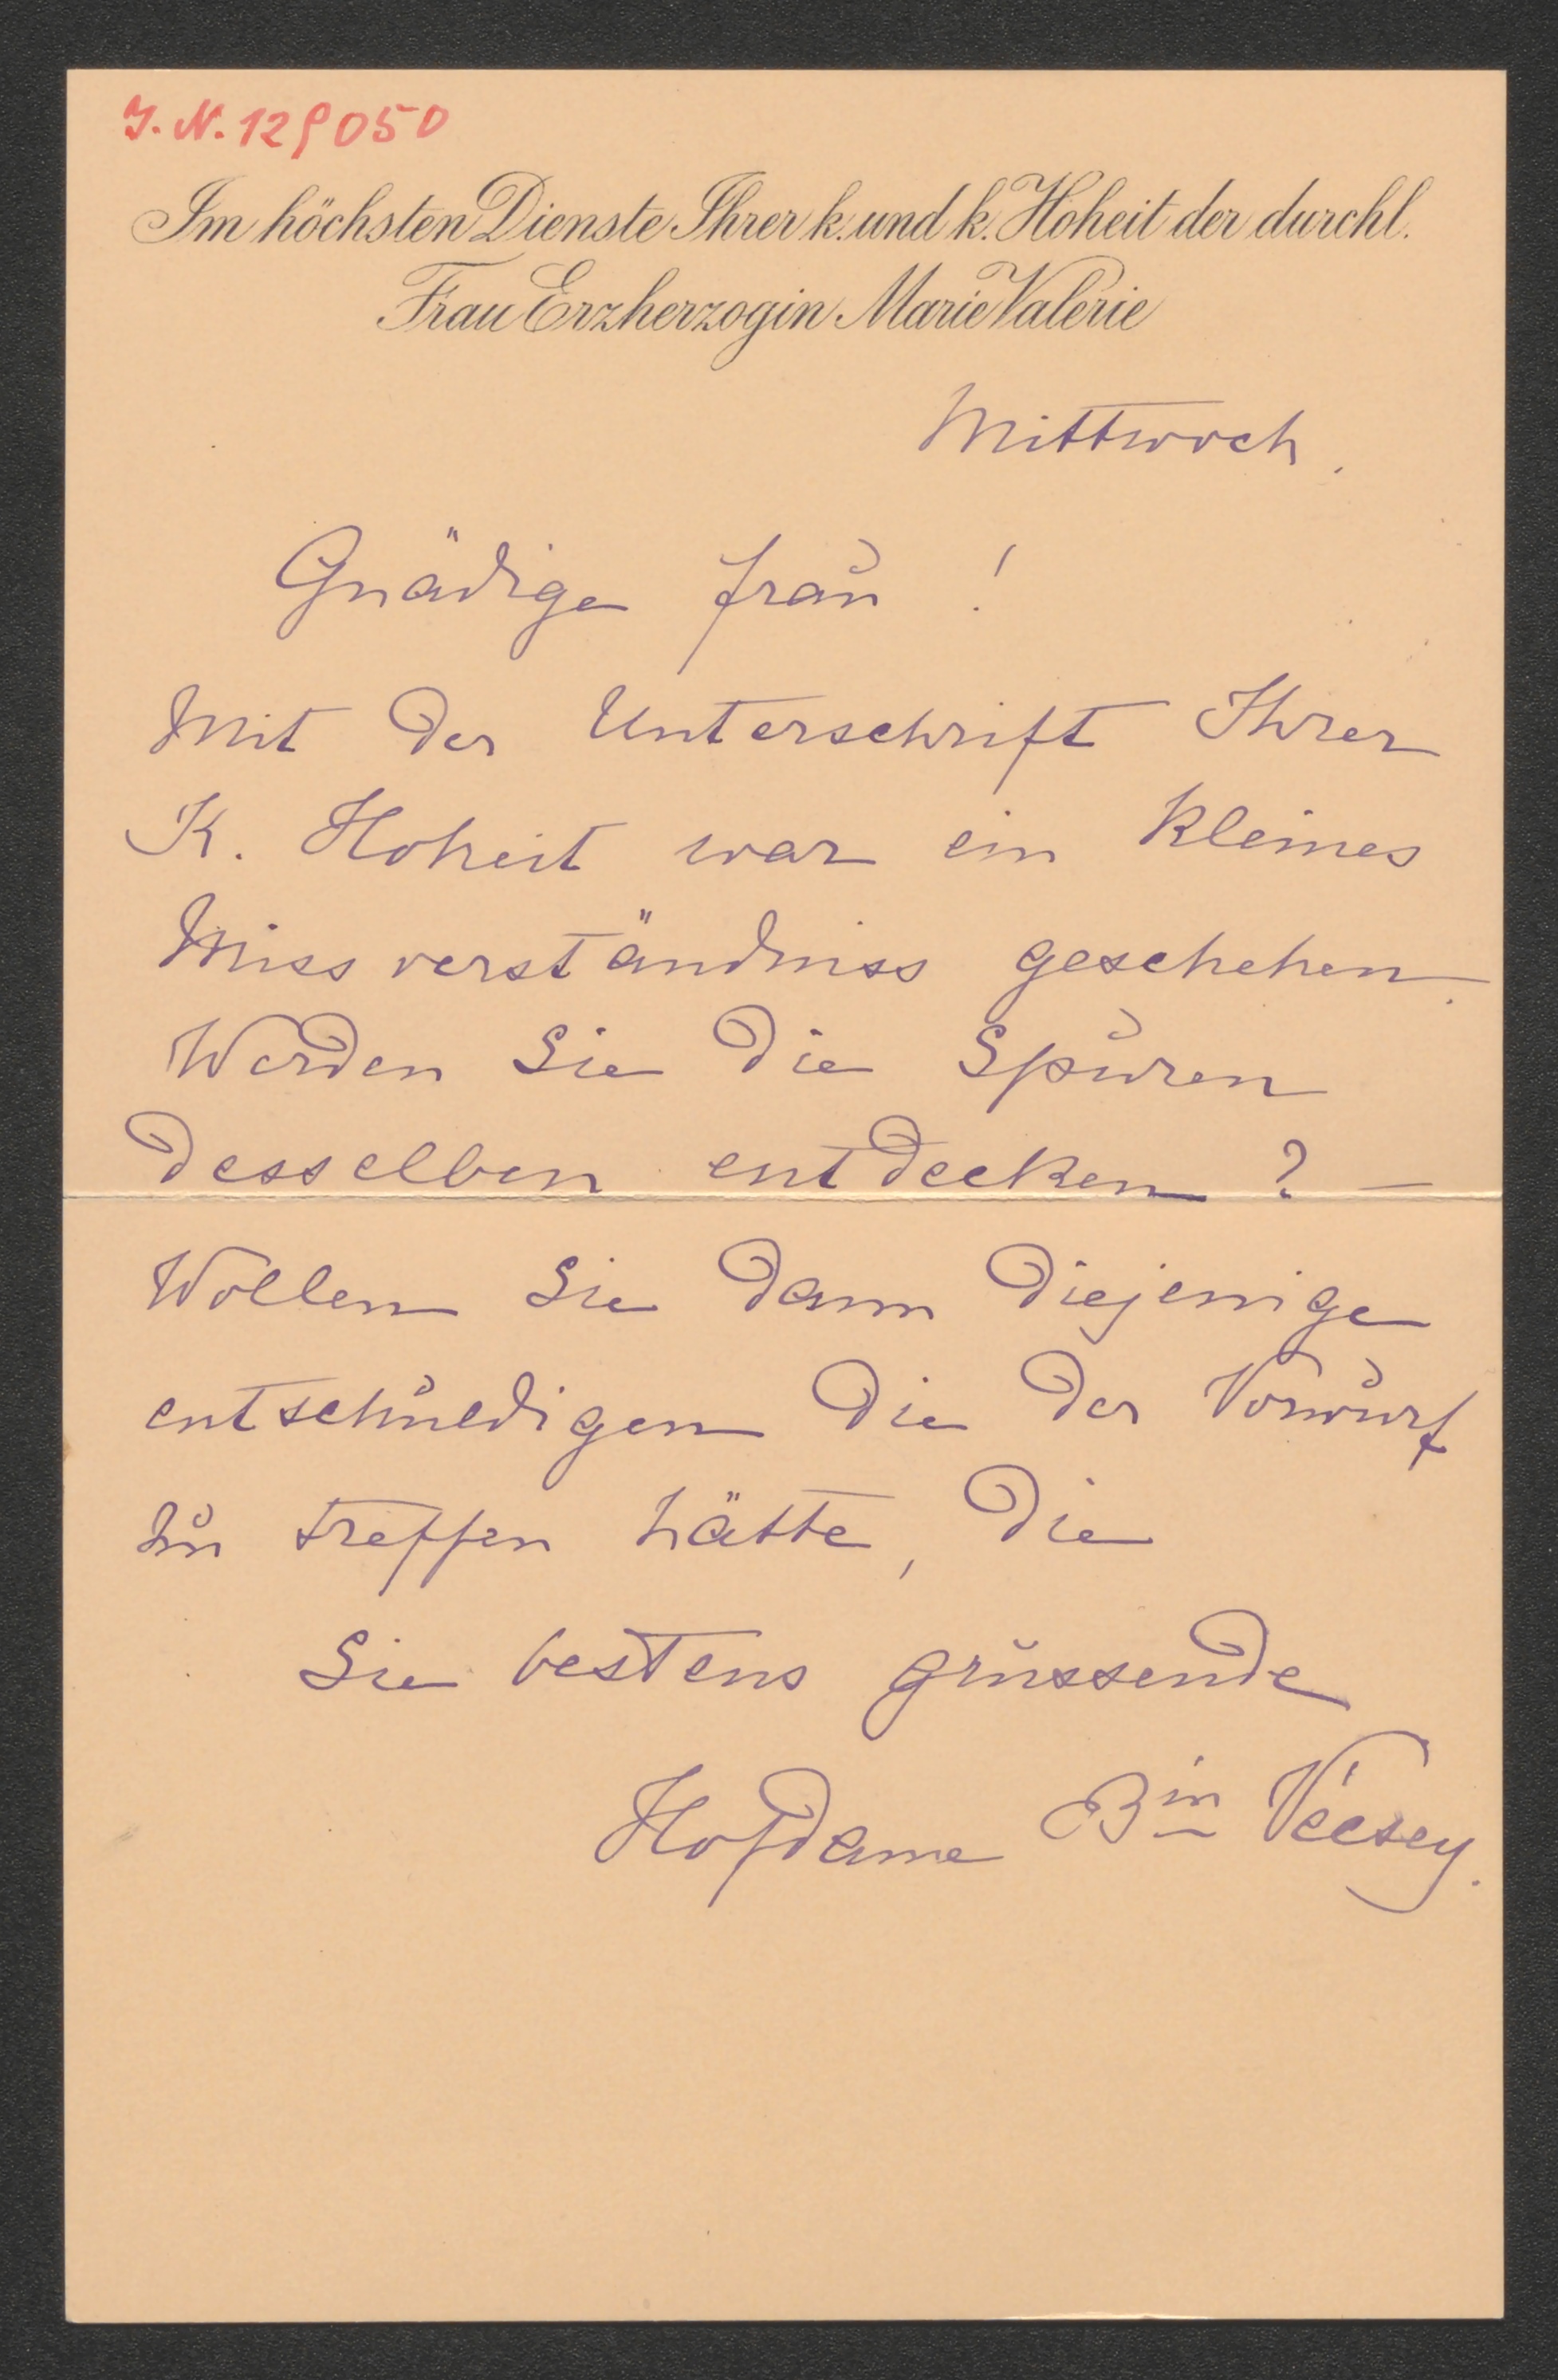 J. N. 129050
Im höchsten Dienste Ihrer k. und k. Hoheit der durchl.
Frau Erzherzogin Marie Valerie
Mittwoch.
Gnädige Frau !
Mit der Unterschrift Ihrer
K. Hoheit war ein kleines
Missverständniss geschehen.
Werden Sie die Spuren
desselben entdecken ? —
Wollen Sie dann diejenige
entschuldigen die der Vorwurf
zu treffen hätte, die
Sie bestens grüssende
Hofdame Bin Vécsey.